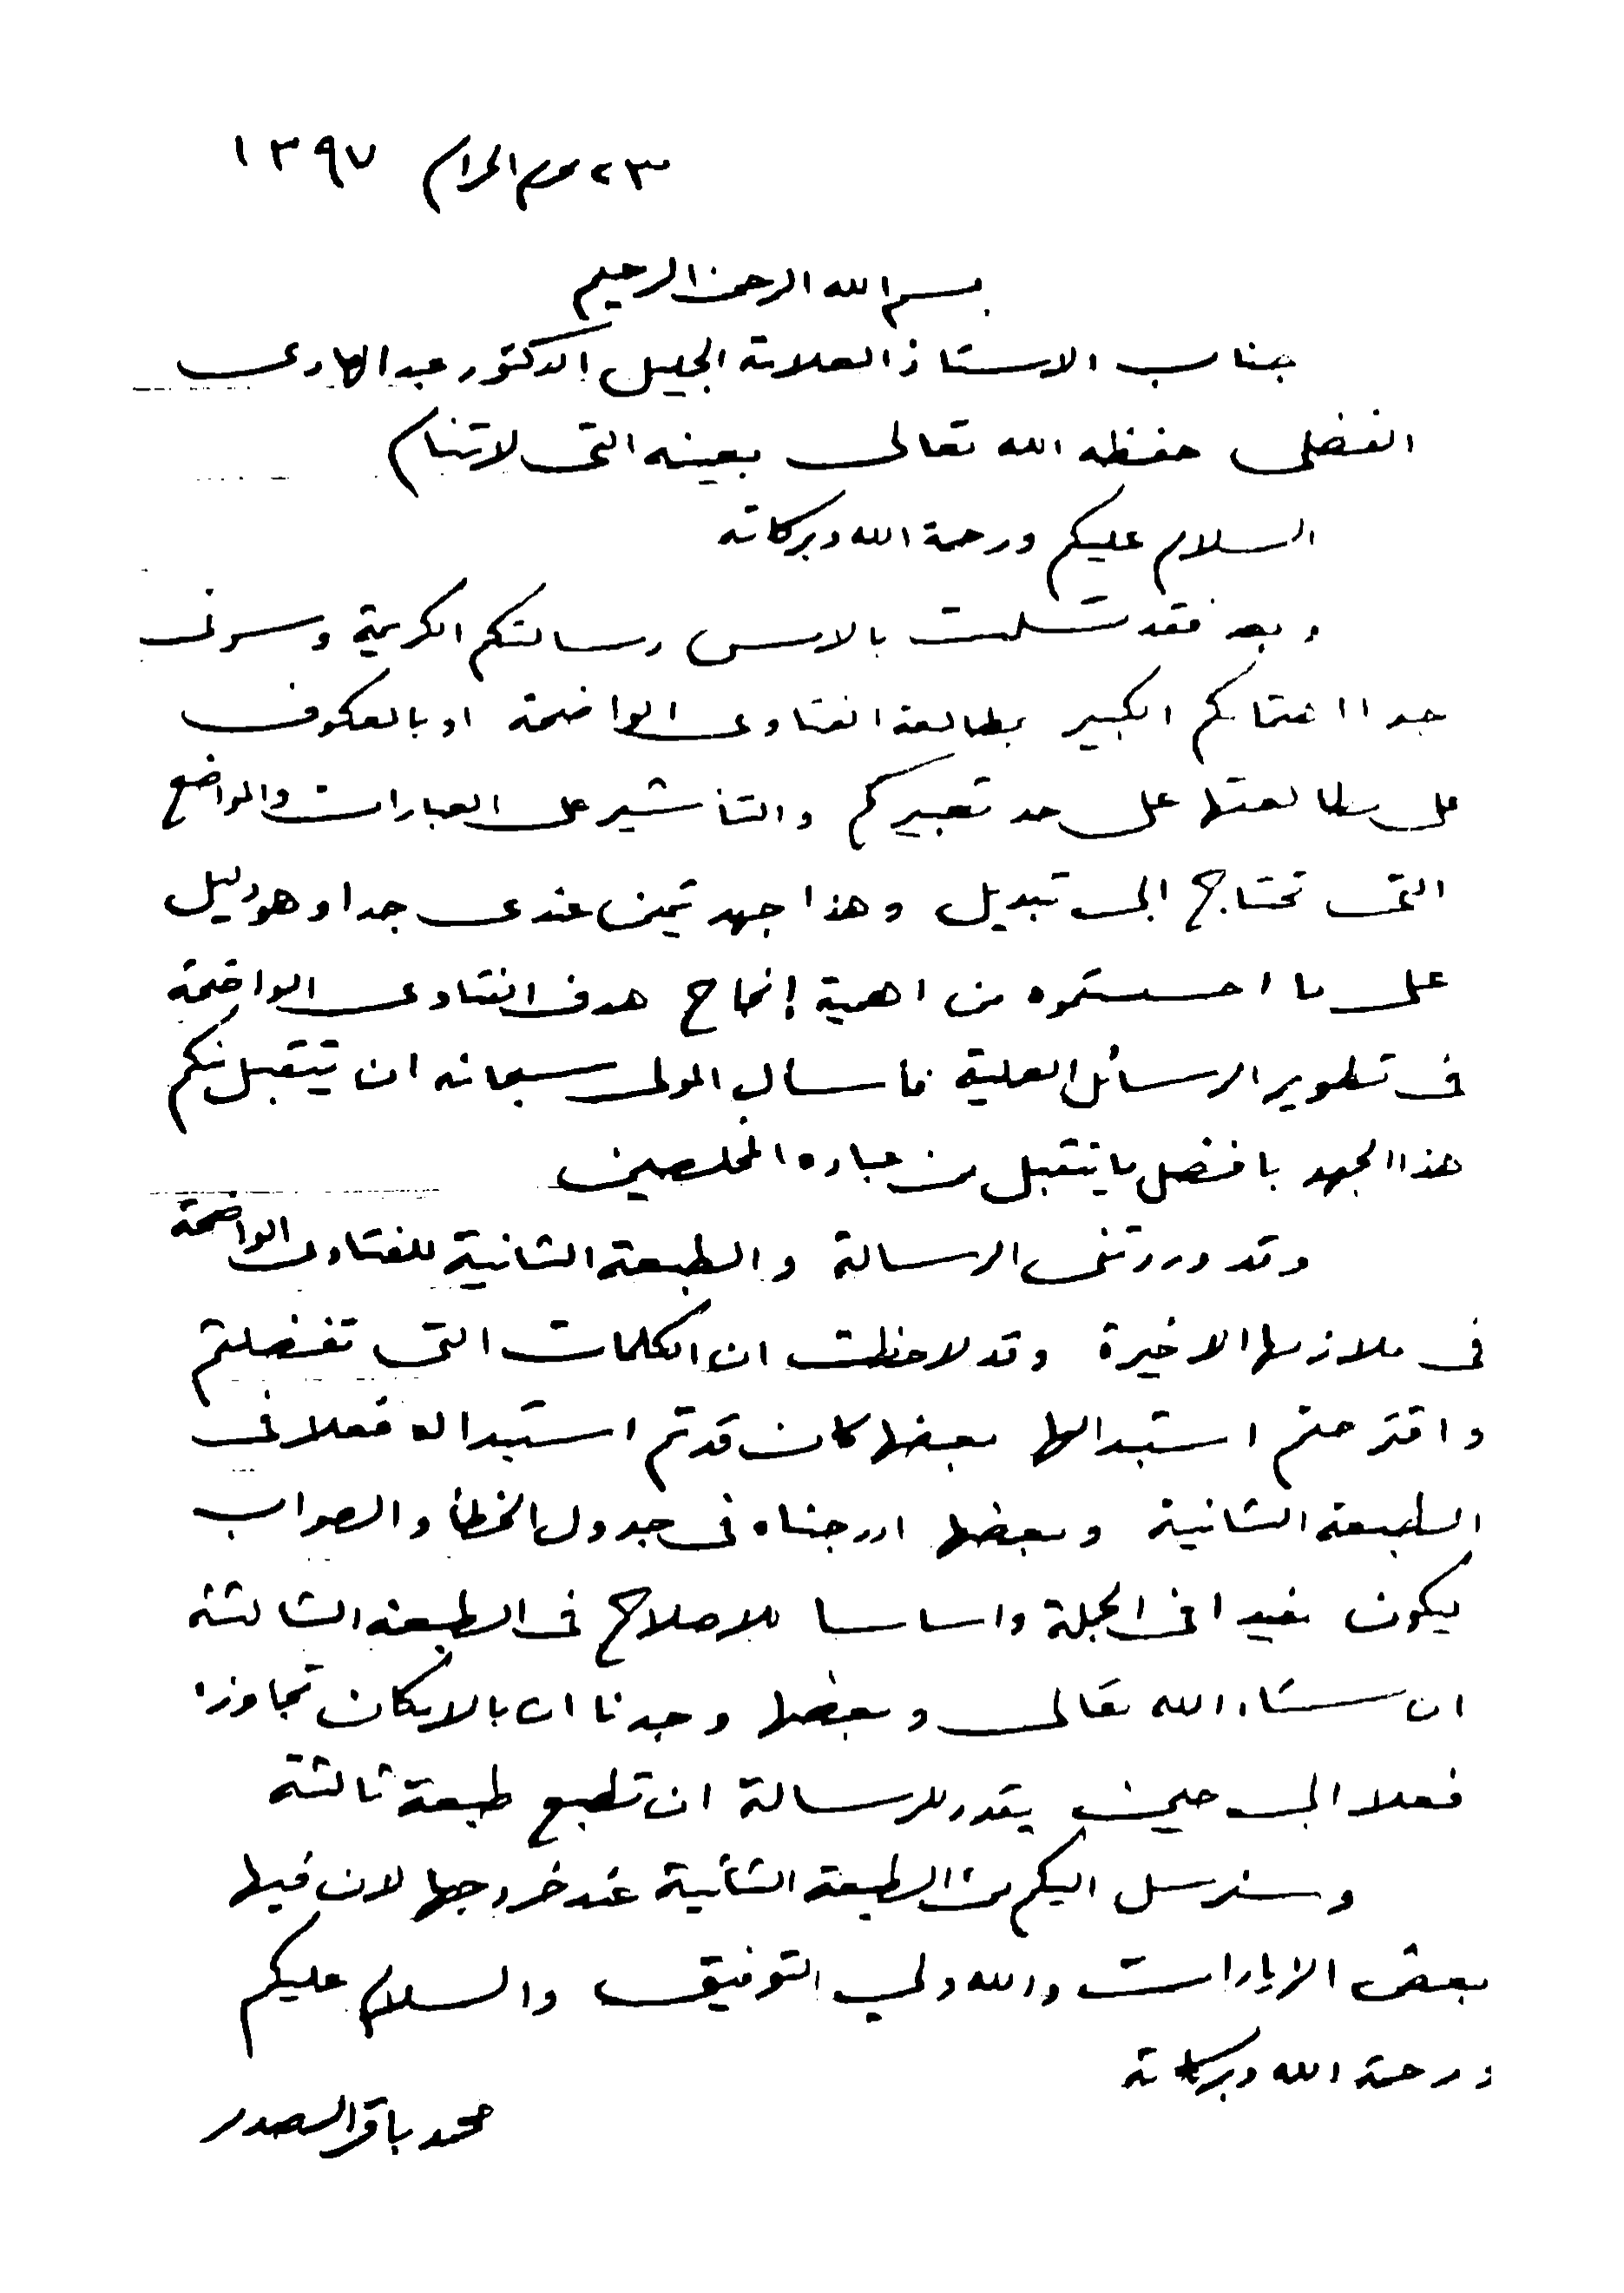 ٢٣ محرم الحرام ١٣٩٧
بسم الله الرحمن الرحيم
جناب الاستاذ العلامة الجليل الدكتور عبد الهادي
الفضلي حفظه الله تعالى بعينه التي لا تنام
السلام عليكم ورحمة الله وبركاته
وبعد فقد تسلمت بالامس رسالتكم الكريمة وسرني
جدا اهتمامكم الكبير بمطالعة الفتاوى الواضحة او بالعكوف
على مطالعتها على حد تعبيركم والتأشير على العبارات والمواضع
التي تحتاج الى تبديل وهذا جهد ثمين عندي جدا وهو دليل
على ما احسستموه من اهمية إنجاح هدف الفتاوى الواضحة
في تطوير الرسائل العملية فاسأل المولى سبحانه ان يتقبل منكم
هذا الجهد بافضل ما يتقبل من عباده المخلصين
وقد وردتني الرسالة والطبعة الثانية للفتاوى الواضحة
في ملازمها الاخيرة وقد لاحظت ان الكلمات التي تفضلتم
واقترحتم استبدالها بعضها كان قد تم استبداله فعلا في
الطبعة الثانية وبعضها ادرجناه في جدول الخطأ والصواب
ليكون مفيدا في الجملة واساسا للاصلاح في الطبعة الثالثة
ان شاء الله تعالى وبعضها وجدنا ان بالامكان تجاوزه
فعلا الى حين يقدر للرسالة ان تطبع طبعة ثالثة
وسنرسل اليكم من الطبعة الثانية عند خروجها لان فيها
بعض الزيادات والله ولي التوفيق والسلام عليكم
ورحمة الله وبركاته
محمد باقر الصدر